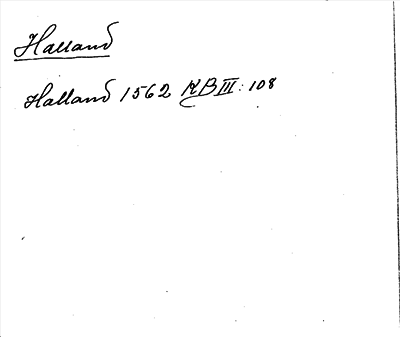 Halland
Halland 1562 KB III: 108